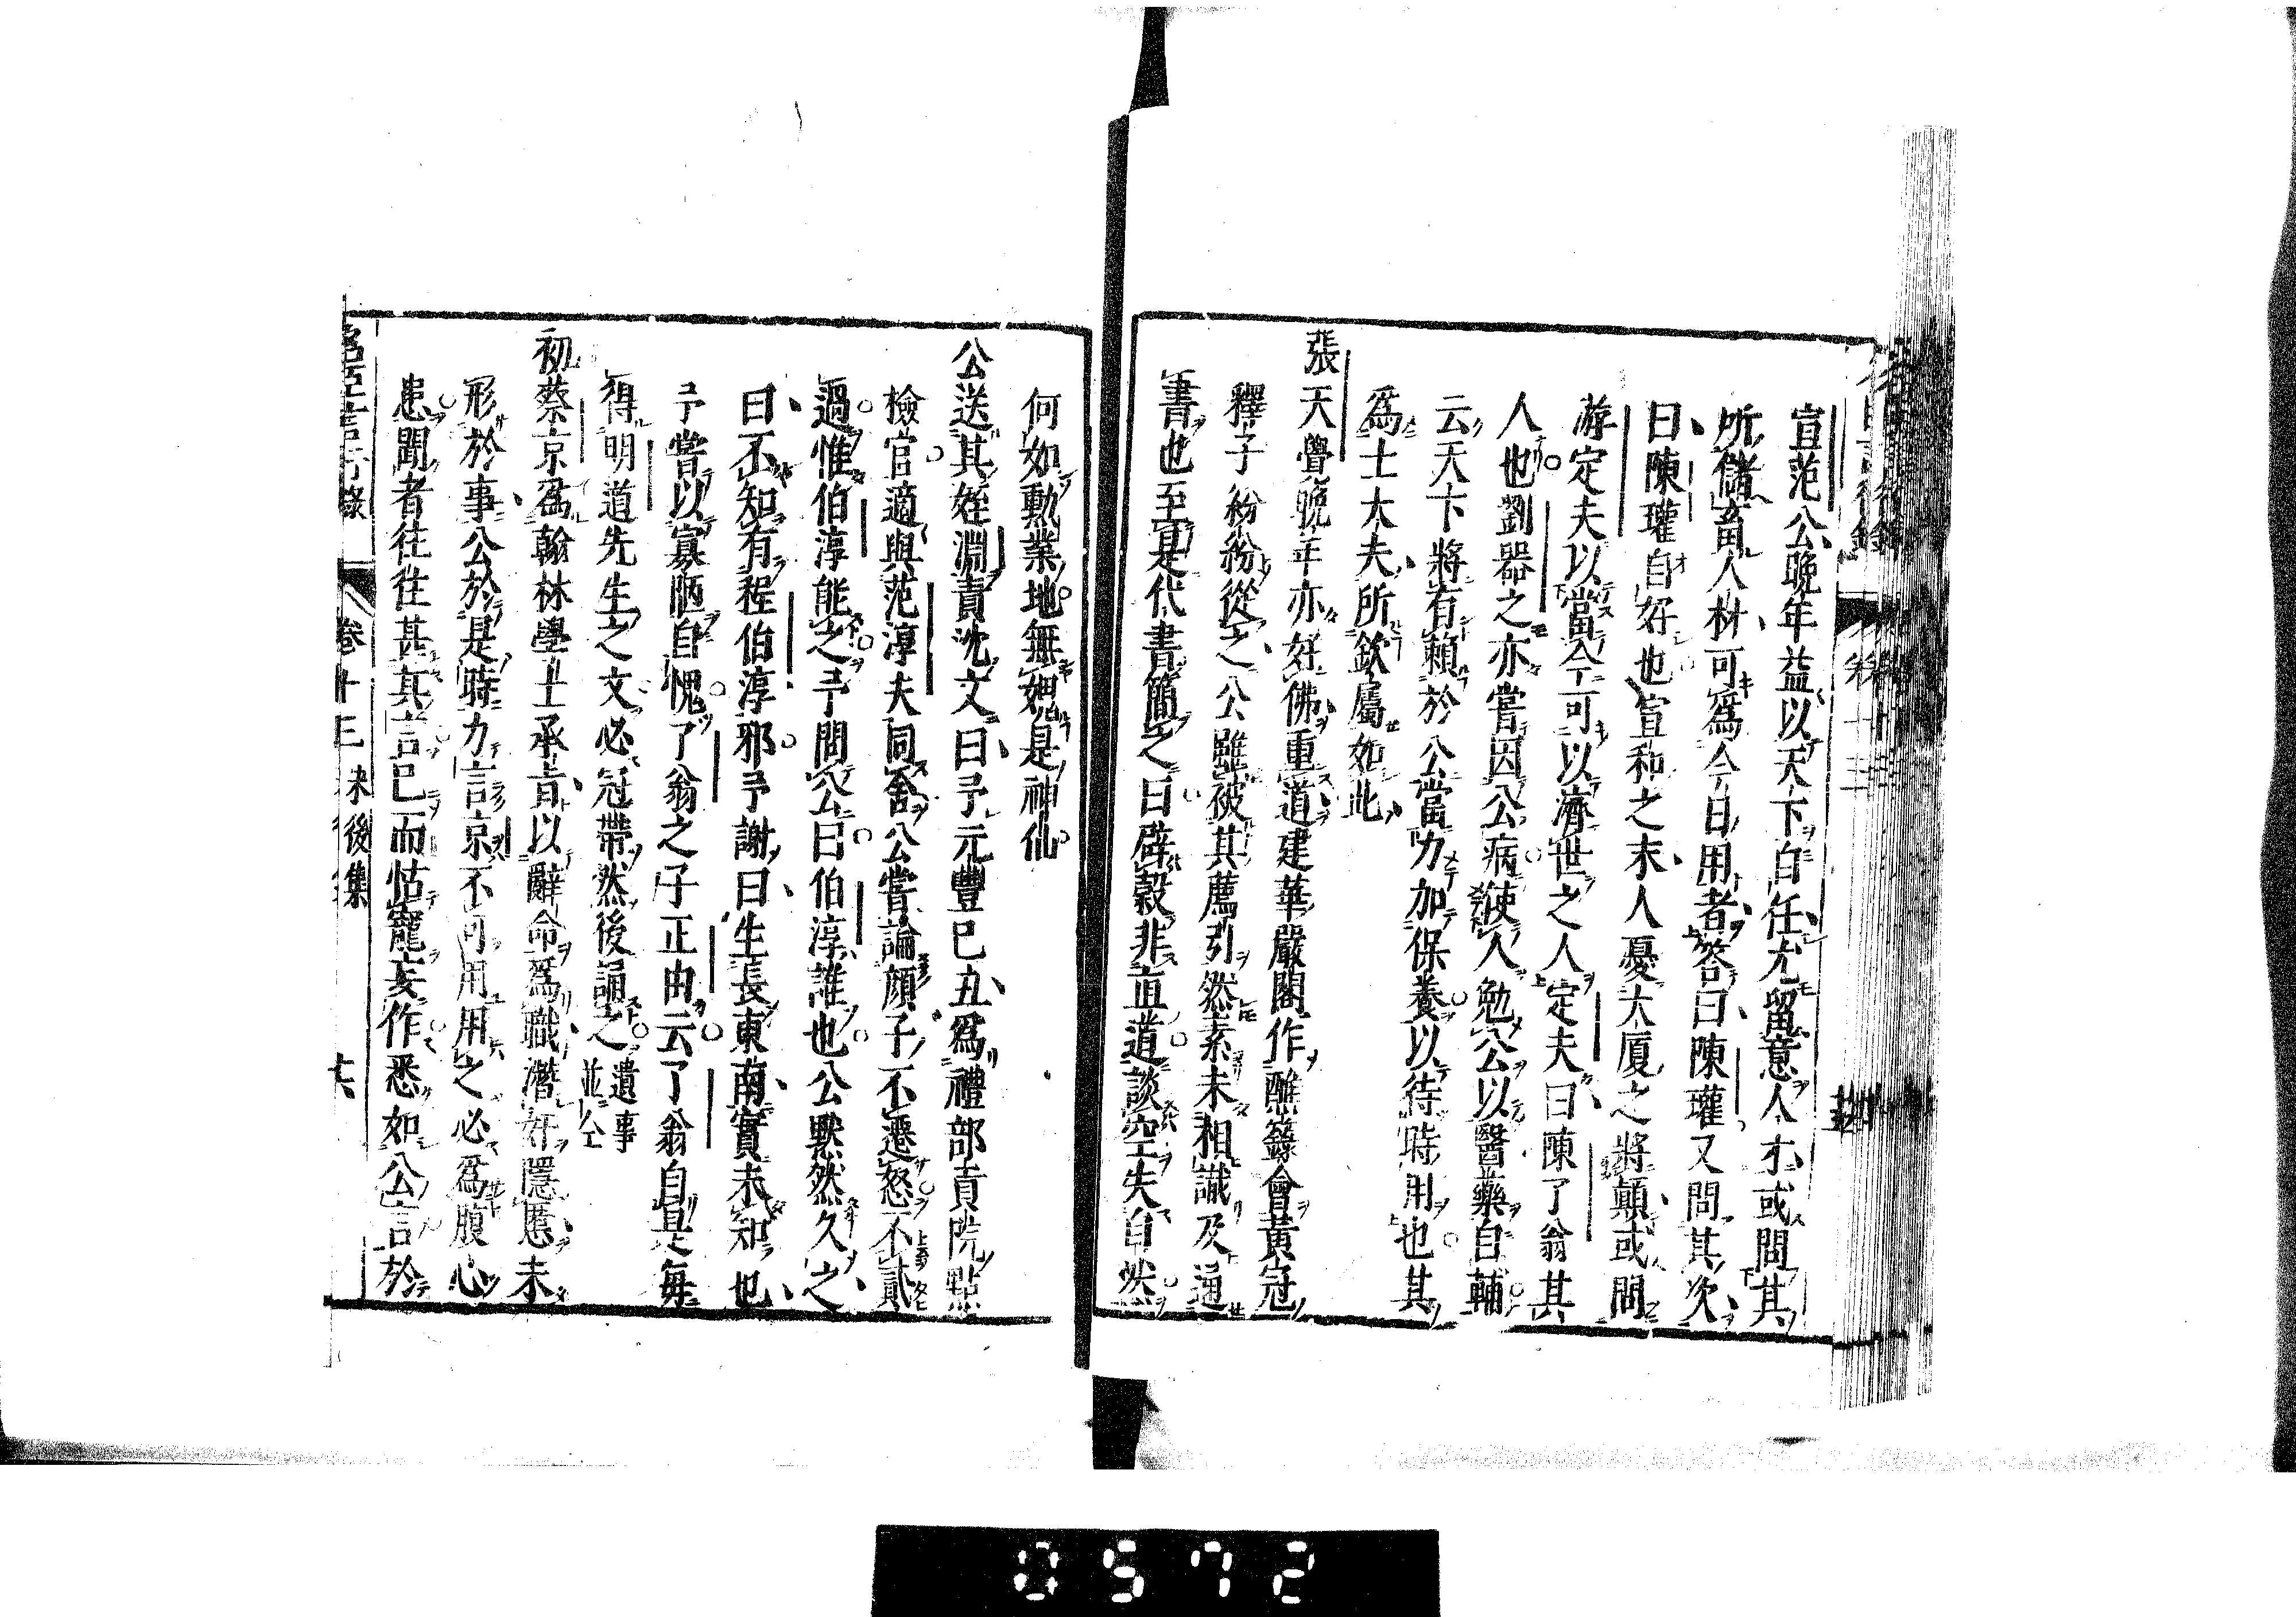 宣范公晚年益以天下自任尤留意人才或問其
所儲畜人材可爲今日用者答曰陳瓘又問其次
曰陳瓘自好也宣和之末人憂大廈之將顛或問
游定夫以當今可以濟世之人定夫曰陳了翁其
人也劉器之亦嘗因公病使人勉公以醫藥自輔
云天下將有賴於公當力加保養以待時用也其
爲士大夫所欽屬如此
張天覺晚年亦好佛重道建華嚴閣作醮籙會黃冠
釋子紛紛從之公雖被其薦引然素未相識及通
書也至直是代書簡之曰辟穀非直道談空失自然
何如勳業地無媿是神仙
公送其姪淵責沈文曰予元豐己丑爲禮部貢院點
檢官適與范淳夫同舍公嘗論顔子不遷怒不貳
過惟伯淳能之予問公曰伯淳誰也公默然久之
曰不知有程伯淳邪予謝曰生長東南實未知也
予嘗以寡陋自愧了翁之子正由云了翁自是每
得明道先生之文必冠帶然後誦之遺事並仝
初蔡京爲翰林學士承旨以辭命爲職潛奸隱慝未
形於事公於是時力言京不可用用之必爲腹心
患聞者往往甚其言已而怙寵妄作悉如公言於
名臣言行錄 卷十三 宋後集 十六
0572